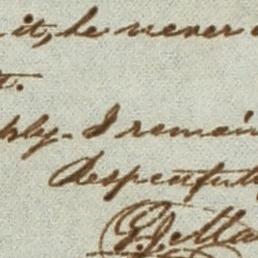 it, he never
t.
ply. I remain
Respectfully